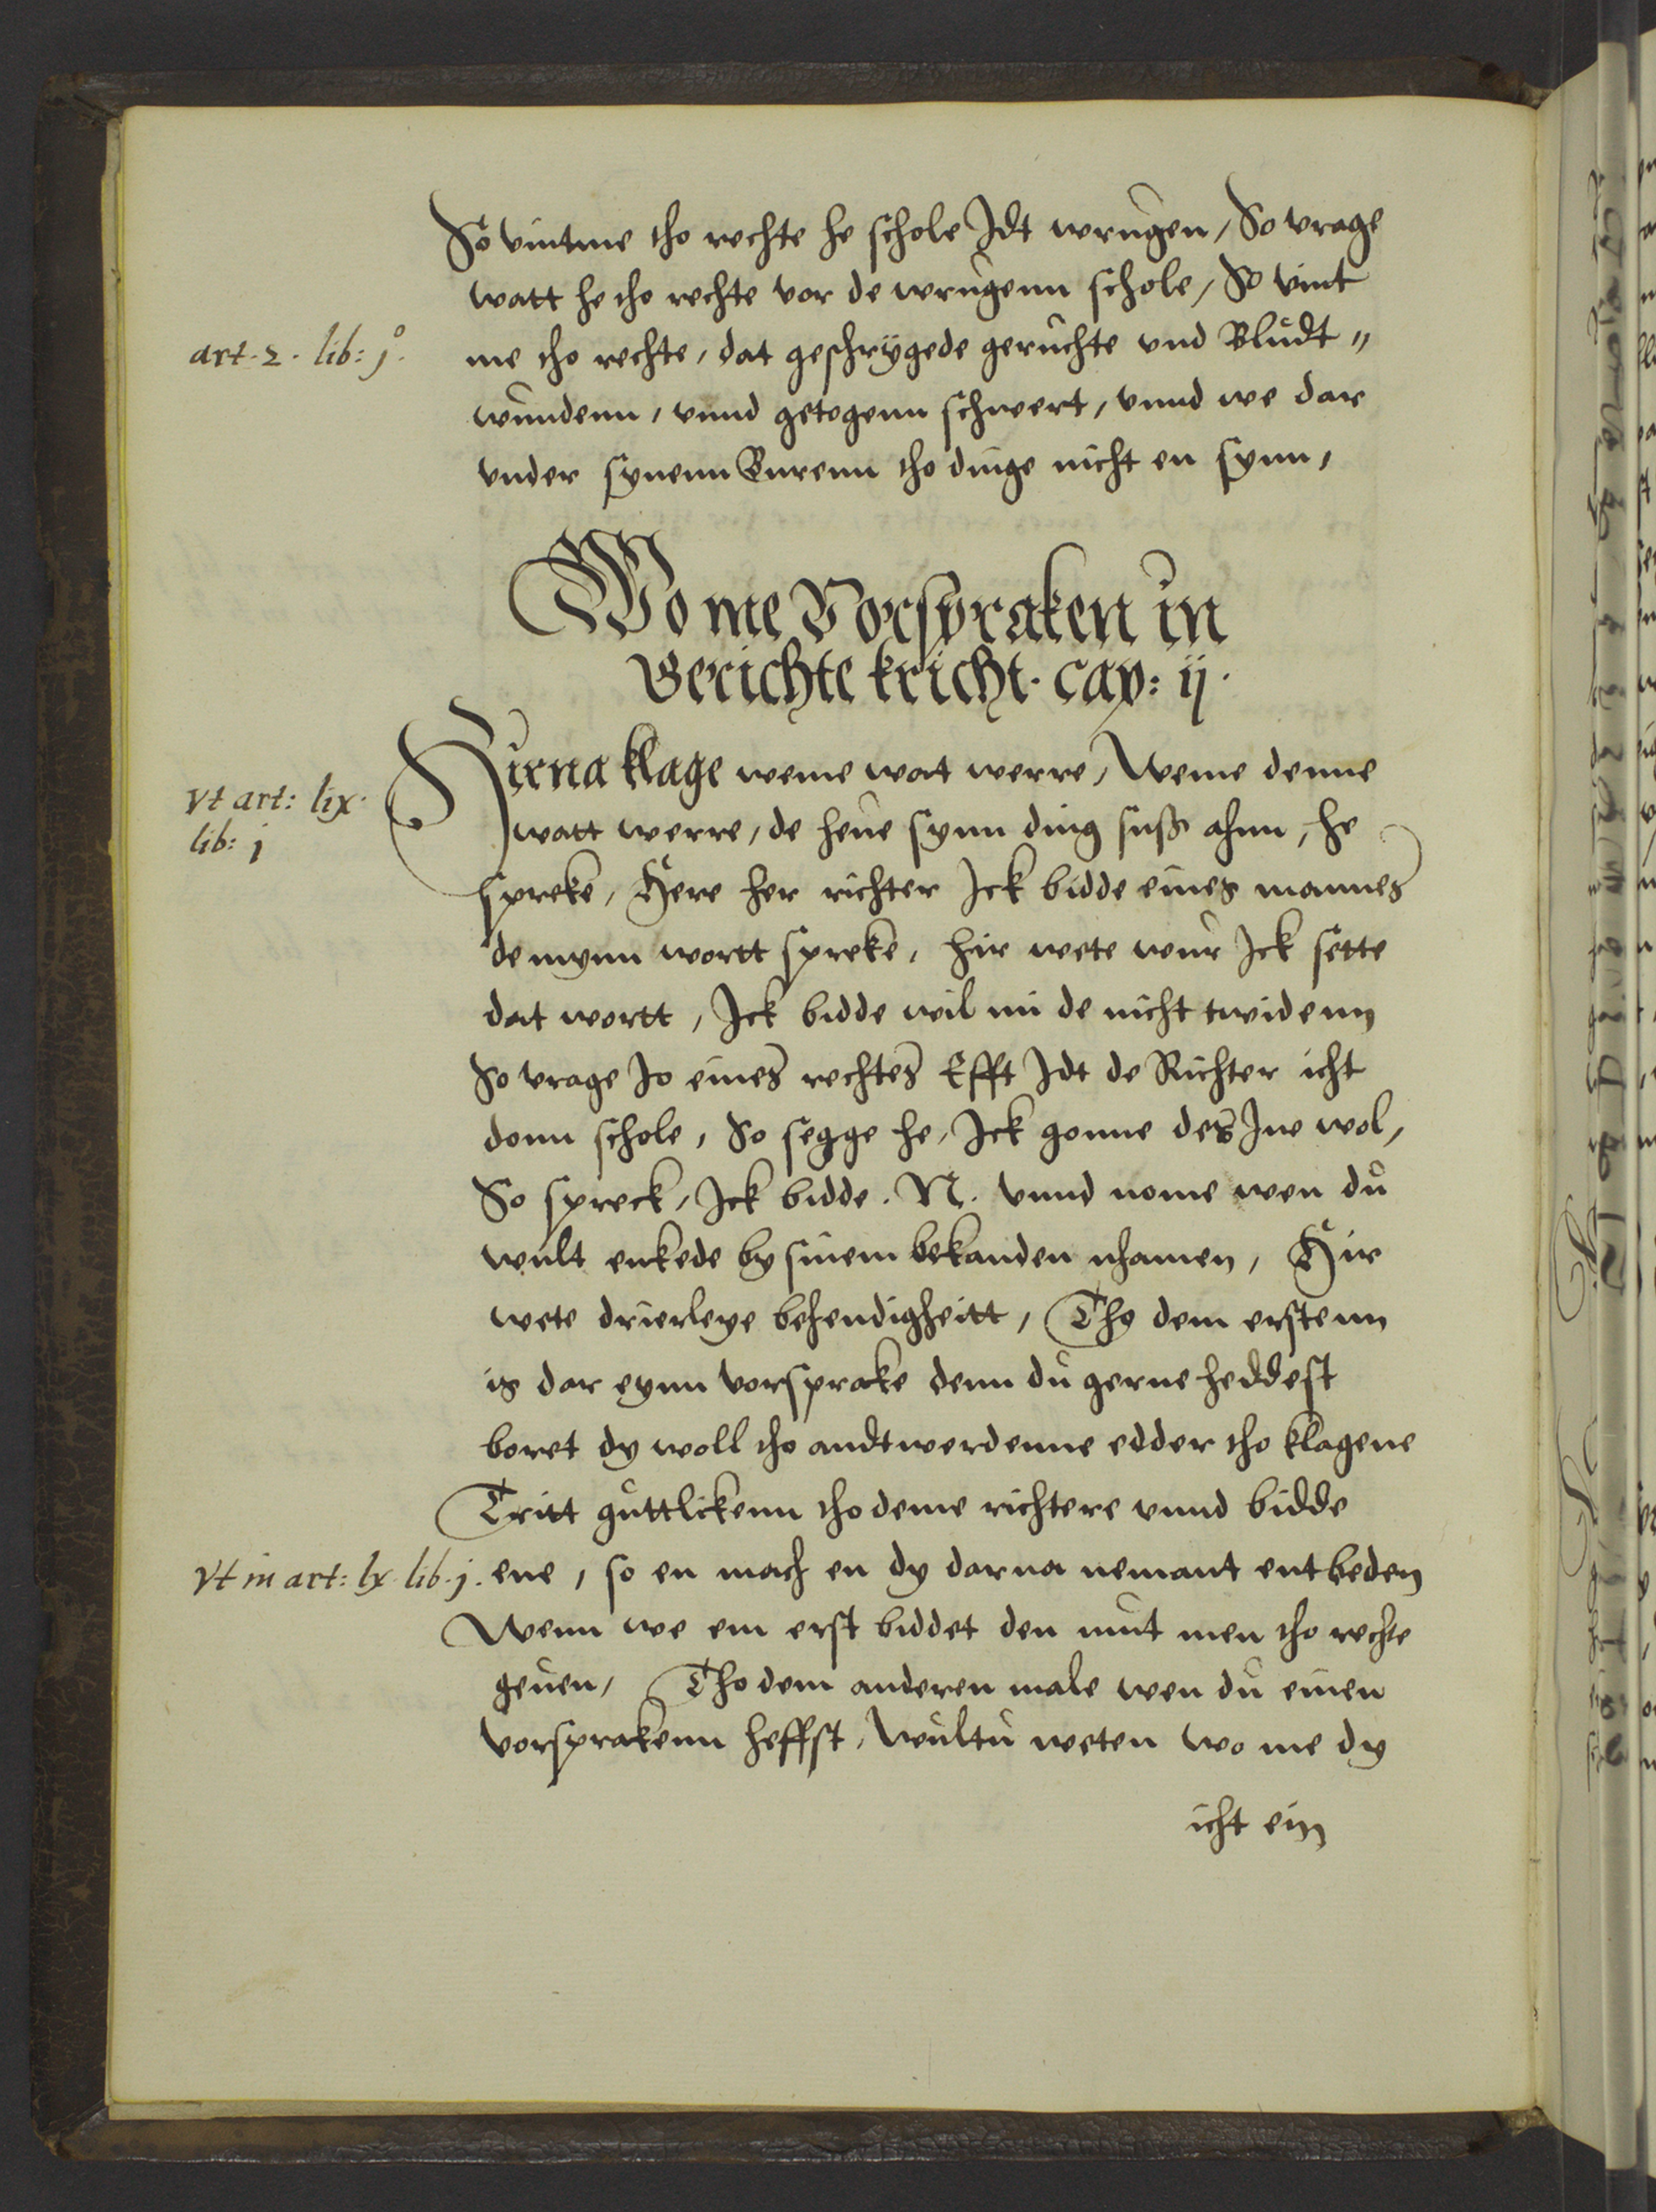 So vintme tho rechte he schole Idt wrugen, So vrage
watt he tho rechte vor de wrugenn schole, So vint
art. 2. lib: jº.
me tho rechte, dat geschrÿgede geruchte vnd Bludt„
wundenn, vnnd getogenn schwert, vnnd we dar
vnder synenn Burenn tho dinge nicht en synn,
Wo me Vorspraken in
Gerichte kricht. cap: ij.
Hirna klage weme wat werre, Weme denne
Vt art: lix.
lib: j
watt werre, de heue synn ding suß ahnn, he
spreke, Here her richter Ick bidde eines mannes
de mynn wortt spreke, hir wete wur Ick sette
dat wortt, Ick bidde wil mi de nicht twidenn
So vrage Jo eines rechtes Efft Idt de Richter icht
donn schole, So segge he, Ick gonne des Juw wol,
So spreck, Ick bidde. N. vnnd nome wen du
wult enkede by sinem bekanden nhamen, Hir
wete drierleye behendigheitt, Tho dem erstenn
is dar eynn vorsprake denn du gerne heddest
boret dy woll tho andtwerdenne edder tho klagene
Tritt guttlikenn tho deme richtere vnnd bidde
Vt in art: lx. lib. j.
ene, so en mach en dy darna nemant entbeden
Wenn we em erst biddet den mut men tho rechte
geuen, Tho dem anderen male wen du einen
vorsprakenn heffst, Wultu weten wo me dy
icht ein